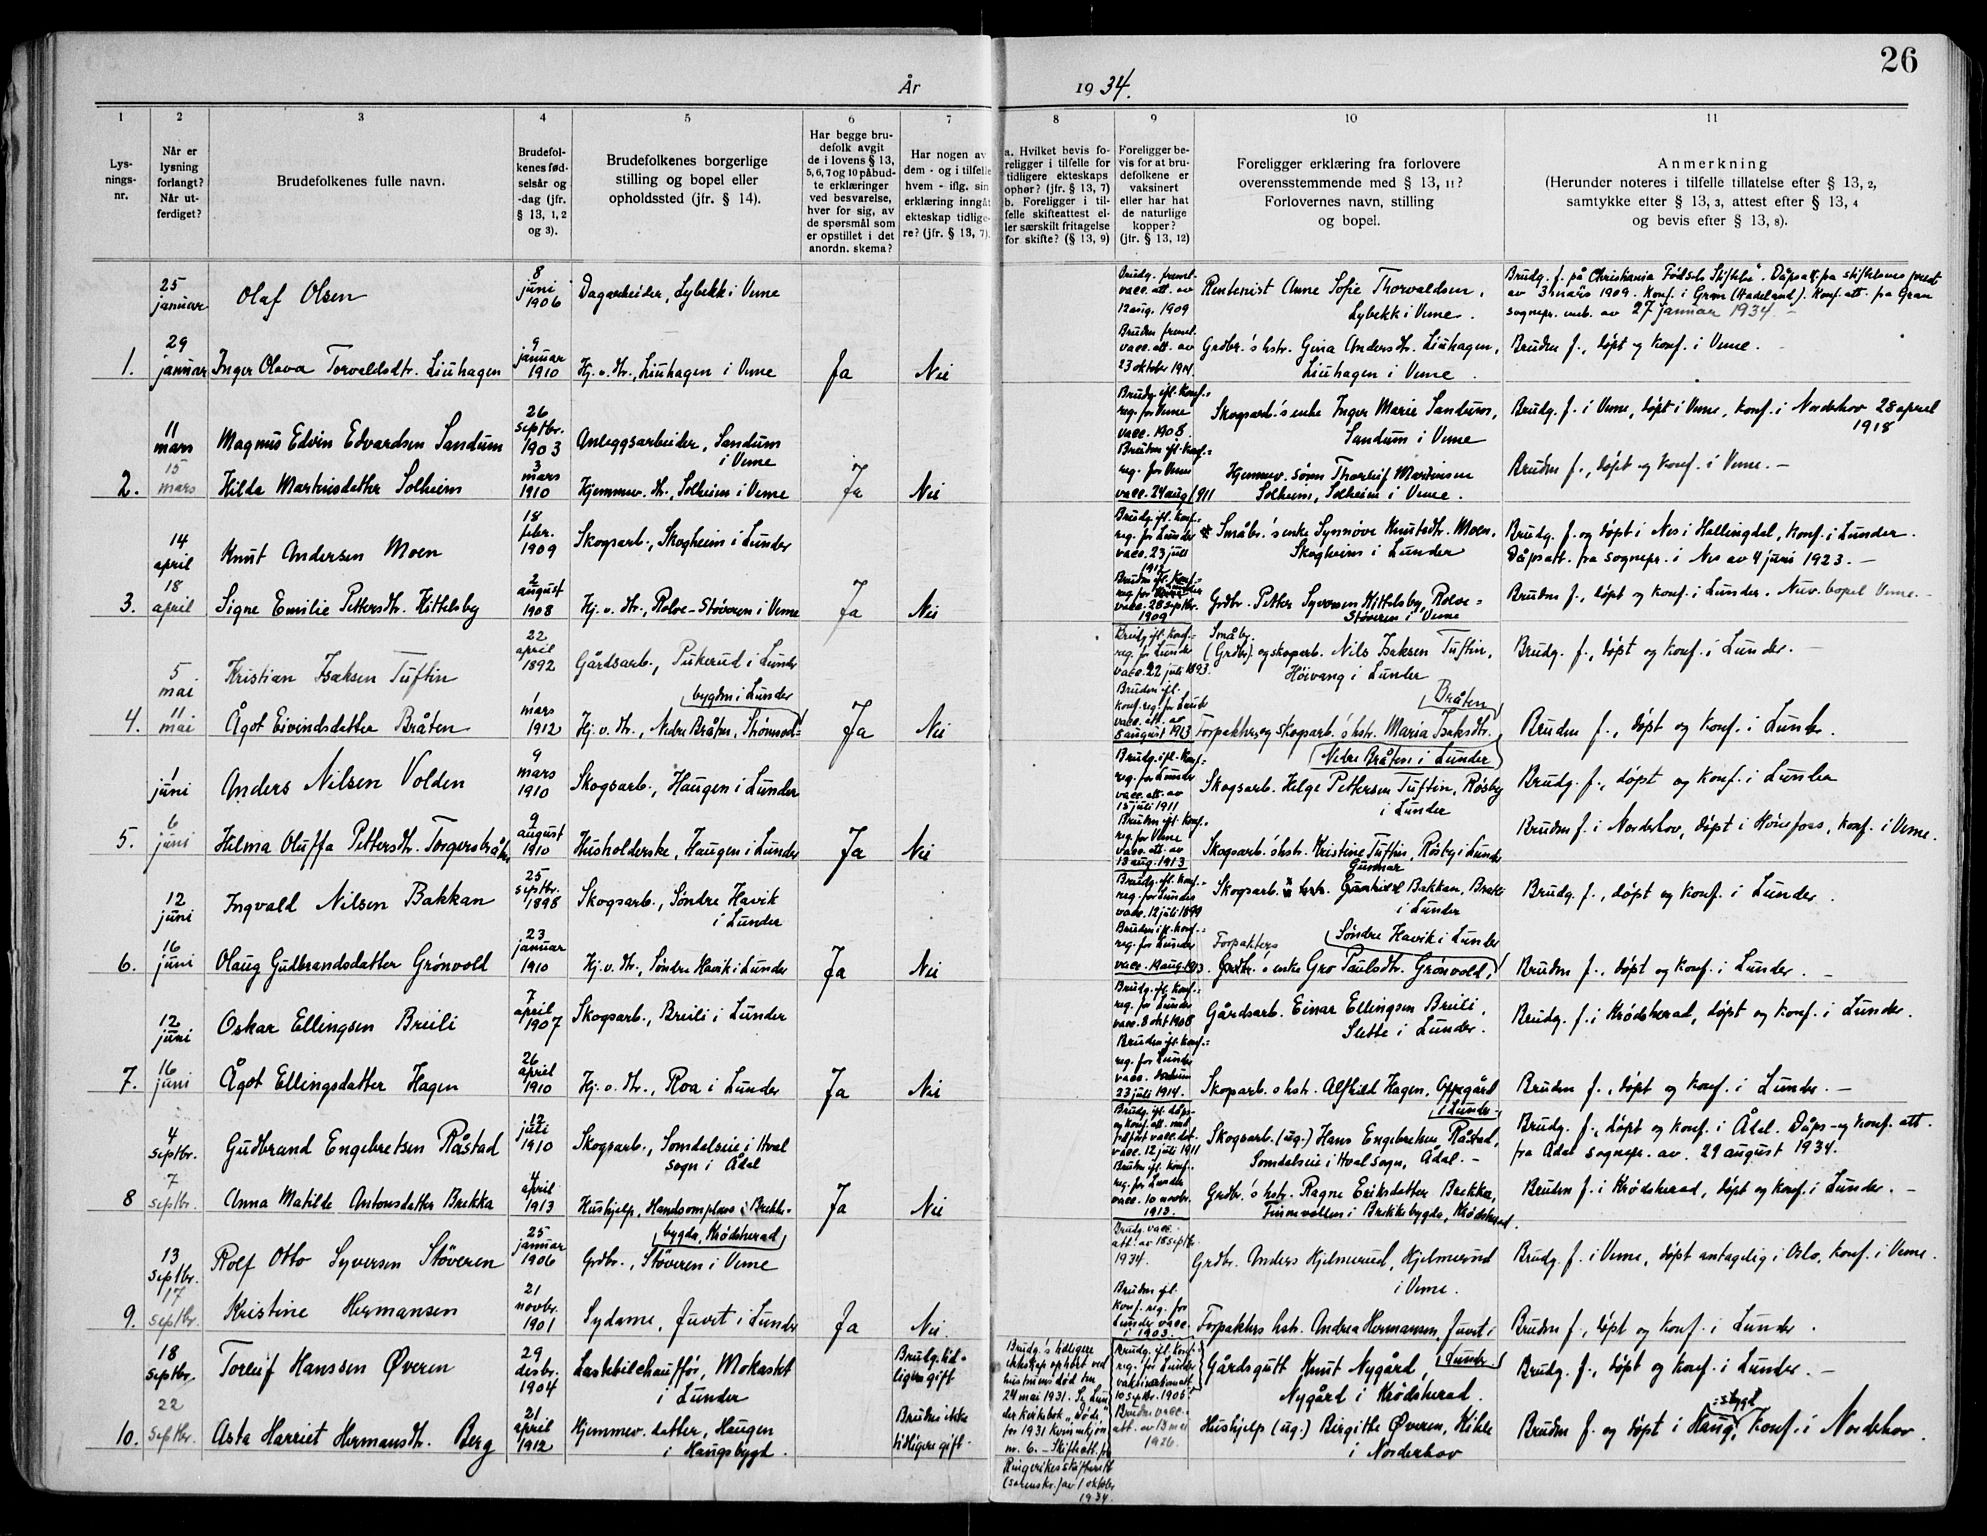 26
År 1934.
1
2
3
4
5
6
7
8
9
10
11
Lys-
nings-
nr.
Når er
lysning
forlangt?
Når ut-
ferdiget?
Brudefolkenes fulle navn.
Brudefol-
kenes fød-
selsår og
-dag (jfr.
§ 13, 1, 2
og 3).
Brudefolkenes borgerlige
stilling og bopel eller
opholdssted (jfr. § 14).
Har begge bru-
defolk avgit
de i lovens § 13,
5, 6, 7 og 10 påbud-
te erklæringer
ved besvarelse,
hver for sig, av
de spørsmål som
er opstillet i det
anordn. skema?
Har nogen av
dem - og i tilfelle
hvem - iflg. sin
erklæring inngåt
ekteskap tidlige-
re? (jfr. § 13, 7).
a. Hvilket bevis fo-
religger i tilfelle for
tidligere ekteskaps
ophør? (jfr. § 13, 7)
b. Foreligger i til-
felle skifteattest el-
ler særskilt fritagelse
for skifte? (§ 13, 9)
Foreligger be-
vis for at bru-
defolkene er
vaksinert
eller har hat
de naturlige
kopper?
(jfr. § 13, 12)
Foreligger erklæring fra forlovere
overensstemmende med § 13, 11?
Forlovernes navn, stilling
og bopel.
Anmerkning
(Herunder noteres i tilfelle tillatelse efter § 13, 2,
samtykke efter § 13, 3, attest efter § 13, 4
og bevis efter § 13, 8).
25
januar
Olaf Olsen
8
juni
1906
Dagarbeider, Lybekk i Veme
Brudg. freml.
vacc. att. av
12 aug. 1909
Rentenist Anne Sofie Thorvaldsen,
Lybekk i Veme.
Brudg. f. på Christiania Fødsels Stiftelse". Dåpsatt. fra stiftelsens prest
av 3 mars 1909. Konf. i Gran (Hadeland). Konf. att. fra Gran
sognepr. emb. av 27 januar 1934. -
1.
29
januar
Inger Olava Torvaldsdtr. Liuhagen
9
januar
1910
Hj. v. dtr., Liuhagen i Veme
Ja
Nei
Bruden freml.
vacc. att. av
23 oktober 1914
Grdbr.'s hstr. Gina Andersdtr. Liuhagen,
Liuhagen i Veme.
Bruden f., døpt og konf. i Veme. -
11
mars
Magnus Edvin Edvardsen Sandum
26
septbr.
1903
Anleggsarbeider, Sandum
i Veme
Brudg. ifl. konf.=
reg. for Veme
vacc. 1908.
Skogsarb.'s enke Inger Marie Sandum,
Sandum i Veme
Brudg. f. i Veme, døpt i Veme, konf. i Norderhov 28 april
1918
2.
15
mars
Hilda Martinsdatter Solheim
3
mars
1910
Hjemmev. dtr., Solheim i Veme
Ja
Nei
Bruden ifl. konf.=
reg. for Veme
vacc. 24 aug. 1911
Hjemmev. sønn Thorleif Martinsen
Solheim, Solheim i Veme.
Bruden f., døpt og konf. i Veme. -
14
april
Knut Andersen Moen
18
febr.
1909
Skogsarb., Skogheim i Lunder
Brudg. ifl. konf.=
reg. for Lunder
vacc. 23 juli
1912
Småbr.'s enke Synnøve Knutsdtr. Moen,
Skogheim i Lunder
Brudg. f. og døpt i Nes i Hallingdal, konf. i Lunder.
Dåpsatt. fra sognepr. i Nes av 4 juni 1923. -
3.
18
april
Signe Emilie Pettersdtr. Kittelsby
2
august
1908
Hj. v. dtr., Rolve-Støveren i Veme
Ja
Nei
Bruden ifl. konf.=
reg. for Lunder
vacc. 28 septbr.
1909
Grdbr. Petter Syversen Kittelsby, Rolve=
Støveren i Veme
Bruden f., døpt og konf. i Lunder. Nuv. bopel Veme. -
5
mai
Kristian Isaksen Tuftin
22
april
1892
Gårdsarb., Pukerud i Lunder
Brudg. ifl. konf.=
reg. for Lunder
vacc. 22 juli 1893.
Småbr.
(Grdbr.) og skogarb. Nils Isaksen Tuftin,
Høivang i Lunder
Brudg. f., døpt og konf. i Lunder. -
4.
11
mai
Ågot Eivindsdatter Bråten
1
mars
1912
bygden i Lunder
Hj. v. dtr., Nedre Bråten, Strømsod=
Ja
Nei
Bruden ifl.
konf. reg. for Lund.
vacc. att. av
8 august 1913
Bråten
Forpakter og skogsarb.'s hstr. Maria Isaksdtr.
Nedre Bråten i Lunder
Bruden f., døpt og konf. i Lunder.
1
juni
Anders Nilsen Volden
9
mars
1910
Skogsarb., Haugen i Lunder
Brudg. ifl. konf=
reg. for Lunder
vacc. att. av
15 juli 1911
Skogsarb. Helge Pettersen Tuftin, Røsby
i Lunder
Brudg. f., døpt og konf. i Lunder
5.
6
juni
Helma Oluffa Pettersdtr. Torgersbråten
9
august
1910
Husholderske, Haugen i Lunder
Ja
Nei
Bruden ifl. konf.=
reg. for Veme
vacc. att. av
18 aug. 1913
Skogsarb.'s hstr. Kristine Tuftin, Røsby i Lunder
Bruden f. i Norderhov, døpt i Hønefoss, konf. i Veme.
12
juni
Ingvald Nilsen Bakkan
25
septbr.
1898
Skogsarb., Søndre Havik
i Lunder
Brudg. ifl. konf.=
reg. for Lunder
vacc. 12 juli 1899
Gunnar
Skogsarb. s hstr. Gunhild Bakkan, Brake
i Lunder
Brudg. f., døpt og konf. i Lunder.
6.
16
juni
Olaug Gudbrandsdatter Grønvold
23
januar
1910
Hj. v. dtr., Søndre Havik i Lunder
Ja
Nei
Bruden ifl. konf.=
reg. for Lunder
vacc. 19 aug. 1913
Søndre Havik i Lunder
Forpakters
Grdbr.'s enke Gro Paulsdtr. Grønvold,
Bruden f., døpt og konf. i Lunder. -
12
juni
Oskar Ellingsen Breili
7
april
1907
Skogsarb., Breili i Lunder
Brudg. ifl. konf.=
reg. for Lunder
vacc. 8 okt 1908
Gårdsarb. Einar Ellingsen Breili,
Slette i Lunder.
Brudg. f. i Krødsherad, døpt og konf. i Lunder.
7.
16
juni
Ågot Ellingsdatter Hagen
26
april
1910
Hj. v. dtr., Roa i Lunder
Ja
Nei
Bruden ifl. konf.=
reg. for Lunder
vacc.
23 juli 1914.
Skogarb.s hstr. Alfhild Hagen, Oppegård
i Lunder
Bruden f., døpt og konf. i Lunder. -
4
septbr.
Gudbrand Engebretsen Råstad
12
juli
1910
Skogsarb., Somdalseie i Hval
sogn i Ådal
Brudg. ifl. dåps-
og konf. att. med
tilført vacc. dat.
vacc. 12 juli 1911
Skogsarb. (ug.) Hans Engebretsen Råstad,
Somdalseie i Hval sogn, Ådal. -
Brudg. f., døpt og konf. i Ådal. Dåps- og konf. att.
fra Ådal sognepr. av. 29 august 1934.
8
7
septbr.
Anna Matilde Antonsdatter Brekka
4
april
1913
Hushjelp, Handsomplass i Brekke-
bygda, Krødsherad
Ja
Nei
Bruden ifl. konf.
reg. for Lunder
vacc. 10 novbr.
1913.
Grdbr.'s hstr. Ragne Eriksdatter Brekka,
Finnevollen i Brekkebygda, Krødsherad.
Bruden f. i Krødsherad, døpt og konf. i Lunder. -
13
septbr.
Rolf Otto Syversen Støveren
25
januar
1906
Grdbr., Støveren i Veme
Brudg. vacc.
att. av 18 septbr.
1934.
Grdbr. Anders Hjelmerud, Hjelmerud
i Veme.
Brudg. f. i Veme, døpt antagelig i Oslo, konf. i Veme.
9.
17
septbr.
Kristine Hermansen
21
novbr.
1901
Sydame, Juvet i Lunder
Ja
Nei
Bruden ifl.
konf. reg. for
Lunder vacc.
i 1903.
Forpakters hstr. Andrea Hermansen, Juvet i
Lunder
Bruden f., døpt og konf. i Lunder.
18
septbr.
Torleif Hanssen Øveren
29
desbr.
1904
Lastebilchauffør, Mokastet
i Lunder
Brudg. tid-
ligere gift
Brudg.'s tidligere
ekteskap ophørt ved
hustruens død den
24 mai 1931. Se Lun
der kirkebok "Døde"
for 1931 kvinnekjøn
nr. 6. - Skifteatt. fra
Ringerikes skifterett
(sorenskr.) av 1 oktober
1934.
Brudg. ifl. konf.
reg. for Lunder
vaksinationsatt.
10 septbr. 1906.
Gårdsgutt Knut Nygård,
Nygård i Krødsherad.
Brudg. f., døpt og konf. i Lunder. -
10.
22
septbr.
Asta Harriet Hermansdtr. Berg
21
april
1912
Hjemmev. datter, Haugen
i Haugsbygd.
Bruden ikke
tidligere gift.
Bruden vacc.
att. av 13 mai
1926.
Hushjelp (ug.) Birgitte Øveren, Kihle
i Norderhov
Bruden f. og døpt i Haug, konf. i Norderhov.
-sbygd